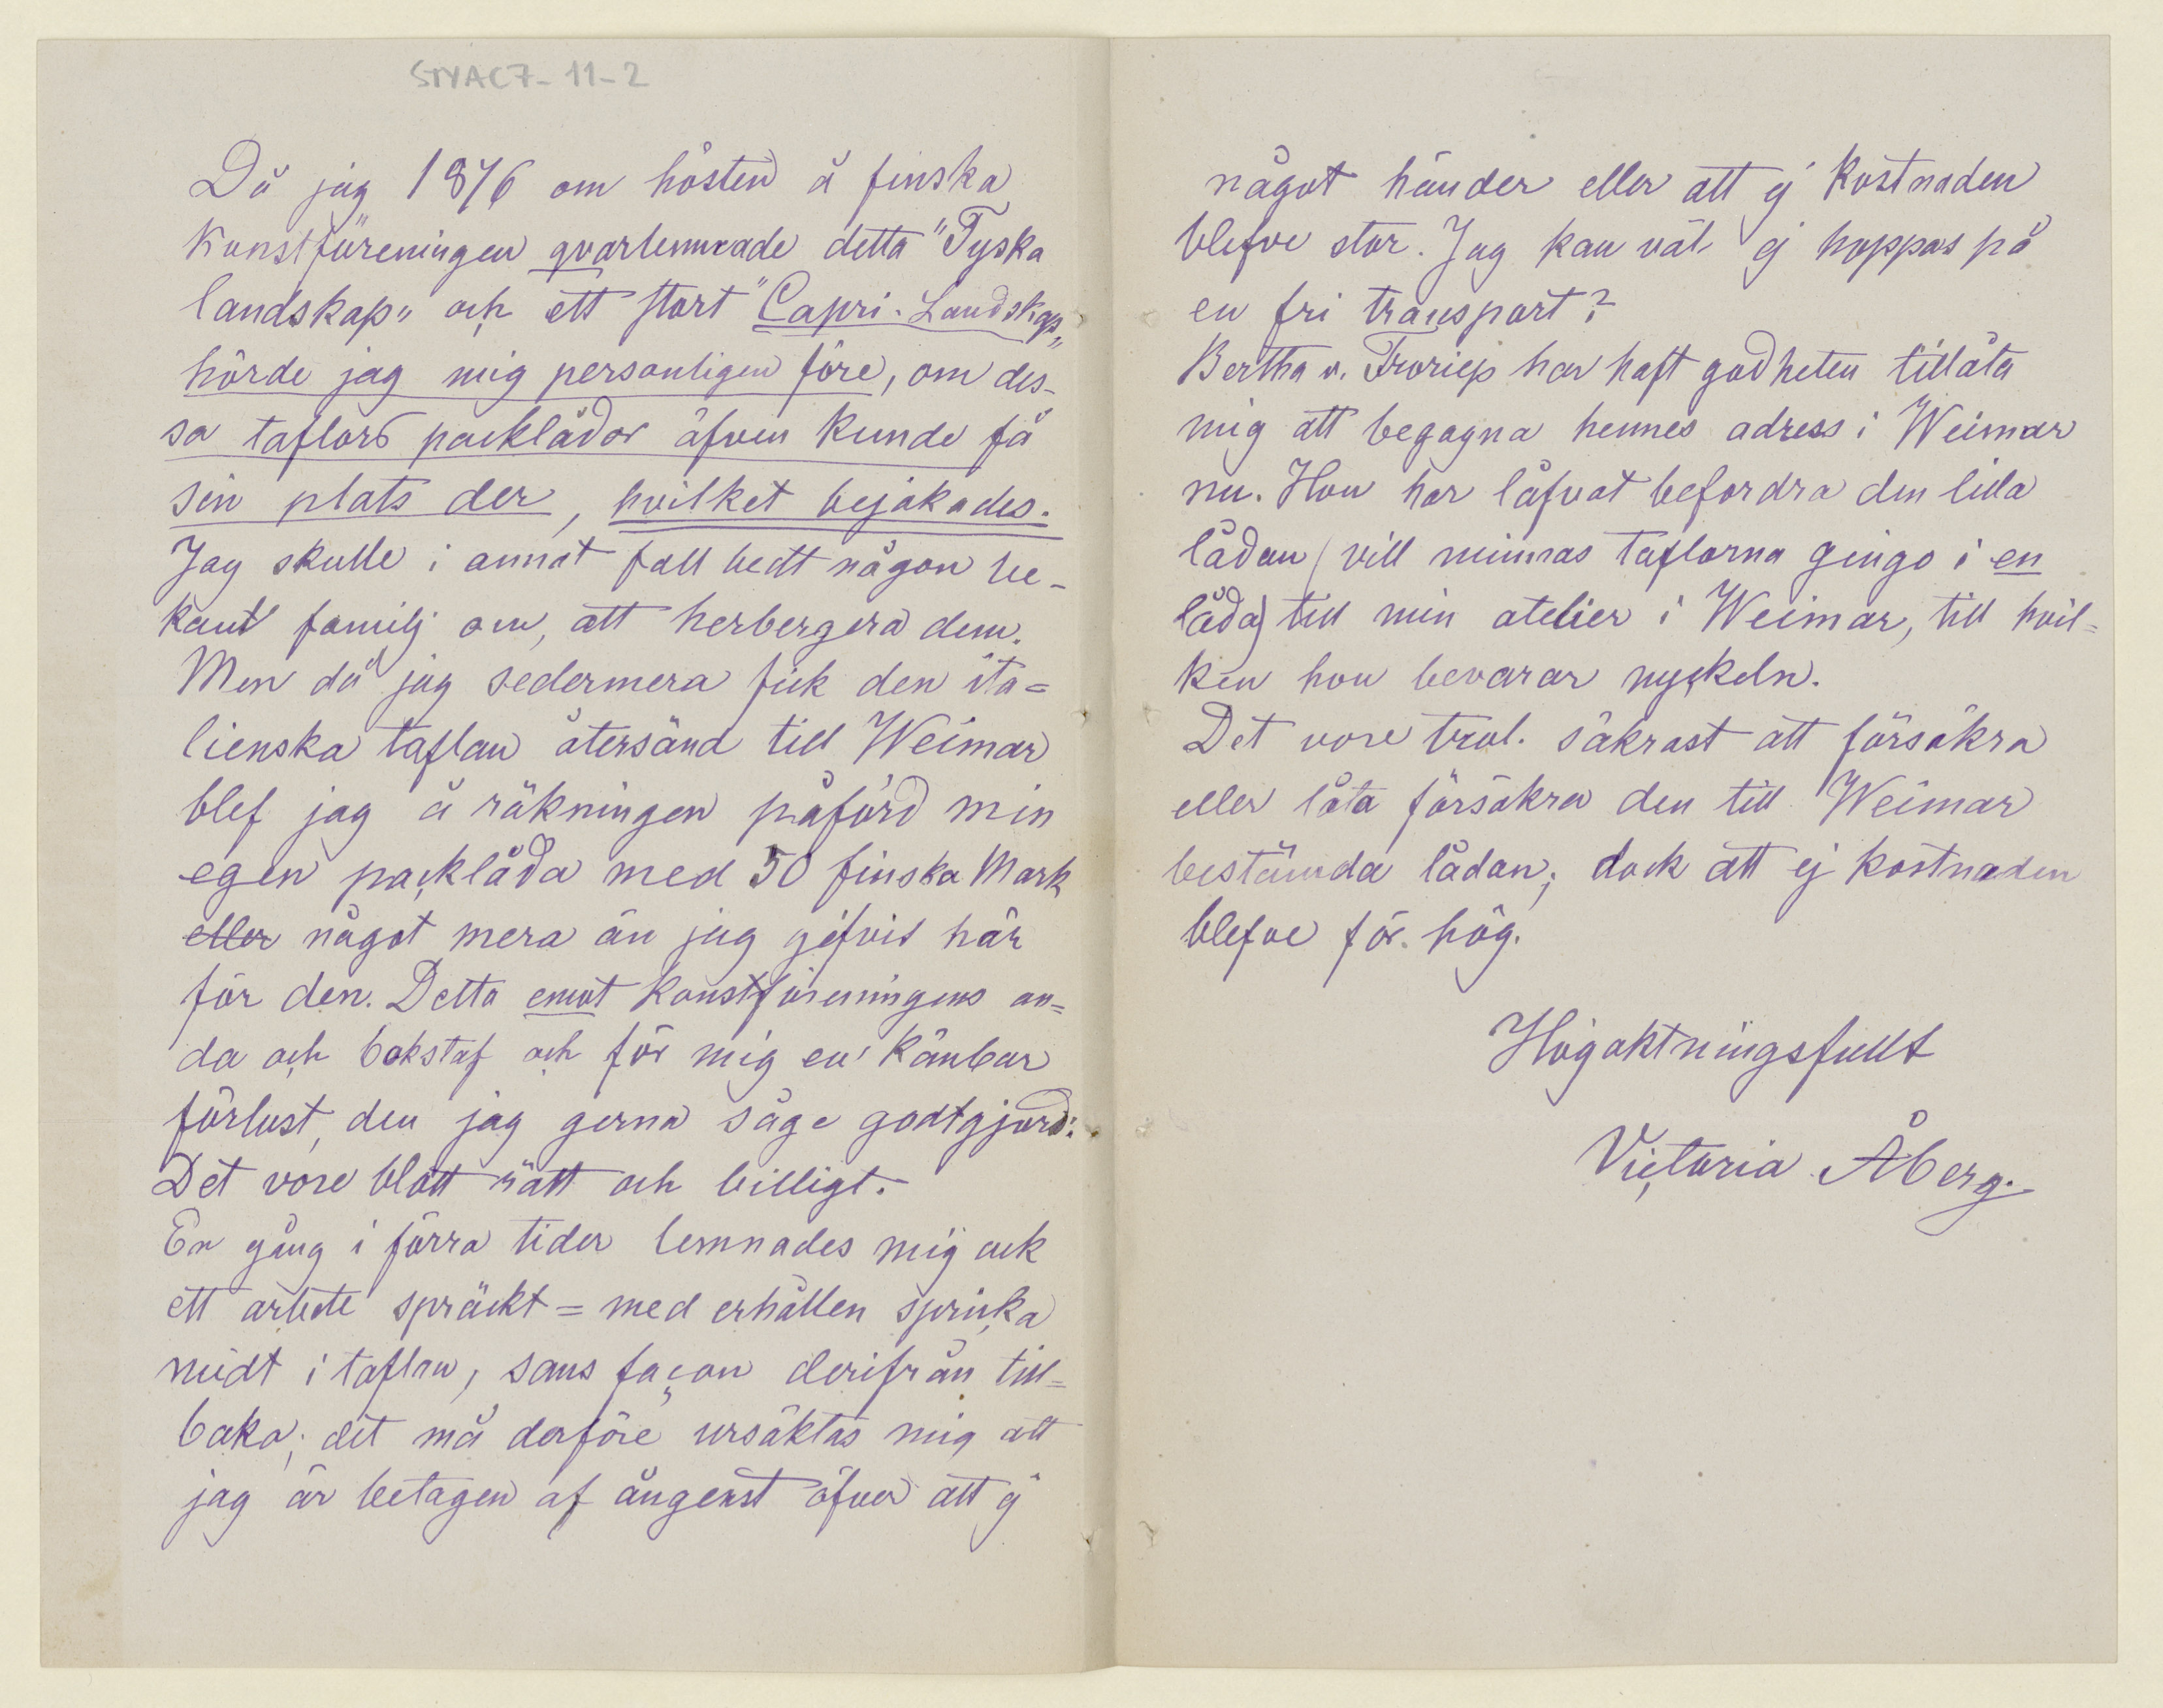 STYAC7-11-2
Då jag 1876 om hösten å finska
Konstföreningen qvarlemnade detta "Tyska
landskap" och ett stort "Capri-Landskap"
hörde jag mig personligen före, om des-
sa taflors packlådor äfven kunde få
sin plats der, hvilket bejakades.
Jag skulle i annat fall bedt någon be-
kant familj om, att herbergera dem.
Men då jag sedermera fick den ita=
lienska taflan återsänd till Weimar
blef jag å räkningen påförd min
egen packlåda med 50 finska Mark
eller något mera än jag gifvit här
för den. Detta emot Konstföreningens an=
da och bokstaf och för mig en känbar
förlust, den jag gerna såge godtgjord:
Det vore blott rätt och billigt.
En gång i förra tider lemnades mig ock
ett arbete spräckt = med erhållen spricka
midt i taflan, sans façon derifrån till=
baka; det må derföre ursäktas mig att
jag är betagen af ångerst öfver att ej
något händer eller att ej kostnaden
blefve stor. Jag kan väl ej hoppas på
en fri transport?
Bertha v. Froriep har haft godheten tillåta
mig att begagna hennes adress i Weimar
nu. Hon har låfvat befordra den lilla
lådan (vill minnas taflorna gingo i en
låda) till min atelier i Weimar, till hvil=
ken hon bevarar nyckeln.
Det vore trol. säkrast att försäkra
eller låta försäkra den till Weimar
bestämda lådan; dock att ej kostnaden
blefve för hög.
Högaktningsfullt
Victoria Åberg.